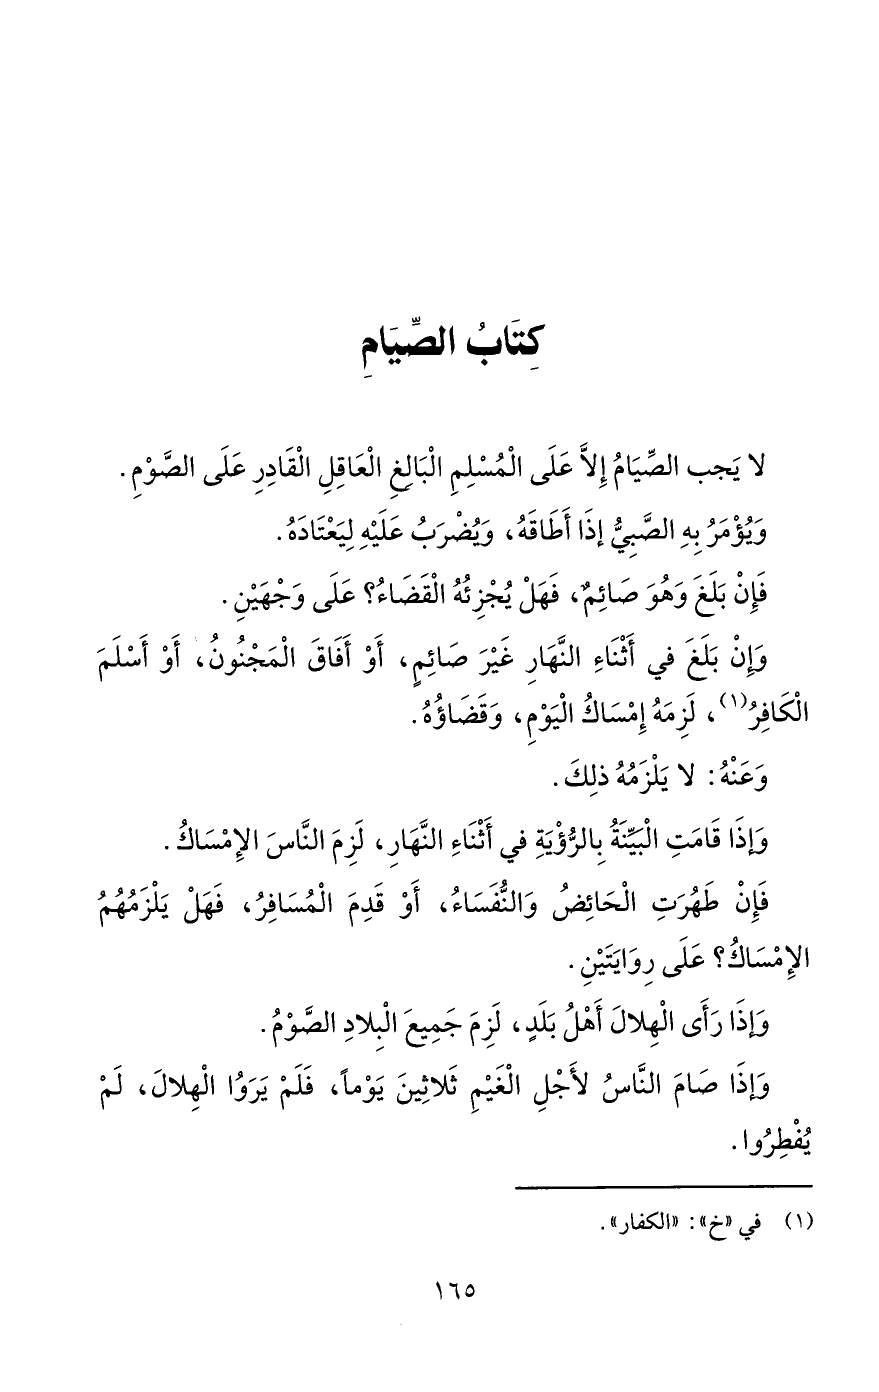 كِتَابُ الصِّيَامِ
لا يَجب الصِّيَامُ إِلاَّ عَلَى الْمُسْلِمِ الْبَالِغِ الْعَاقِلِ الْقَادِرِ عَلَى الصَّوْمِ.
وَيُؤْمَرُ بِهِ الصَّبِيُّ إِذَا أَطَاقَهُ، وَيُضْرَبُ عَلَيْهِ لِيَعْتَادَهُ.
فَإِنْ بَلَغَ وَهُوَ صَائِمٌ، فَهَلْ يُجْزِئُهُ الْقَضَاءُ؟ عَلَى وَجْهَيْنِ.
وَإِنْ بَلَغَ في أَثْنَاءِ النَّهَارِ غَيْرَ صَائِمٍ، أَوْ أَفَاقَ الْمَجْنُونُ، أَوْ أَسْلَمَ
الْكَافِرُ(١)، لَزِمَهُ إِمْسَاكُ الْيَوْمِ، وَقَضَاؤُهُ.
وَعَنْهُ: لا يَلْزَمُهُ ذلِكَ.
وَإِذَا قَامَتِ الْبَيِّنَةُ بِالرُّؤْيَةِ في أَثْنَاءِ النَّهَارِ، لَزِمَ النَّاسَ الإِمْسَاكُ.
فَإِنْ طَهُرَتِ الْحَائِضُ وَالنُّفَسَاءُ، أَوْ قَدِمَ الْمُسَافِرُ، فَهَلْ يَلْزَمُهُمُ
الإِمْسَاكُ؟ عَلَى رِوَايَتَيْنِ.
وَإِذَا رَأَى الْهِلالَ أَهْلُ بَلَدٍ، لَزِمَ جَمِيعَ الْبِلادِ الصَّوْمُ.
وَإِذَا صَامَ النَّاسُ لأَجْلِ الْغَيْمِ ثَلاثِينَ يَوْماً، فَلَمْ يَرَوُا الْهِلالَ، لَمْ
يُفْطِرُوا.
(١) في «خ»: «الكفار».
١٦٥